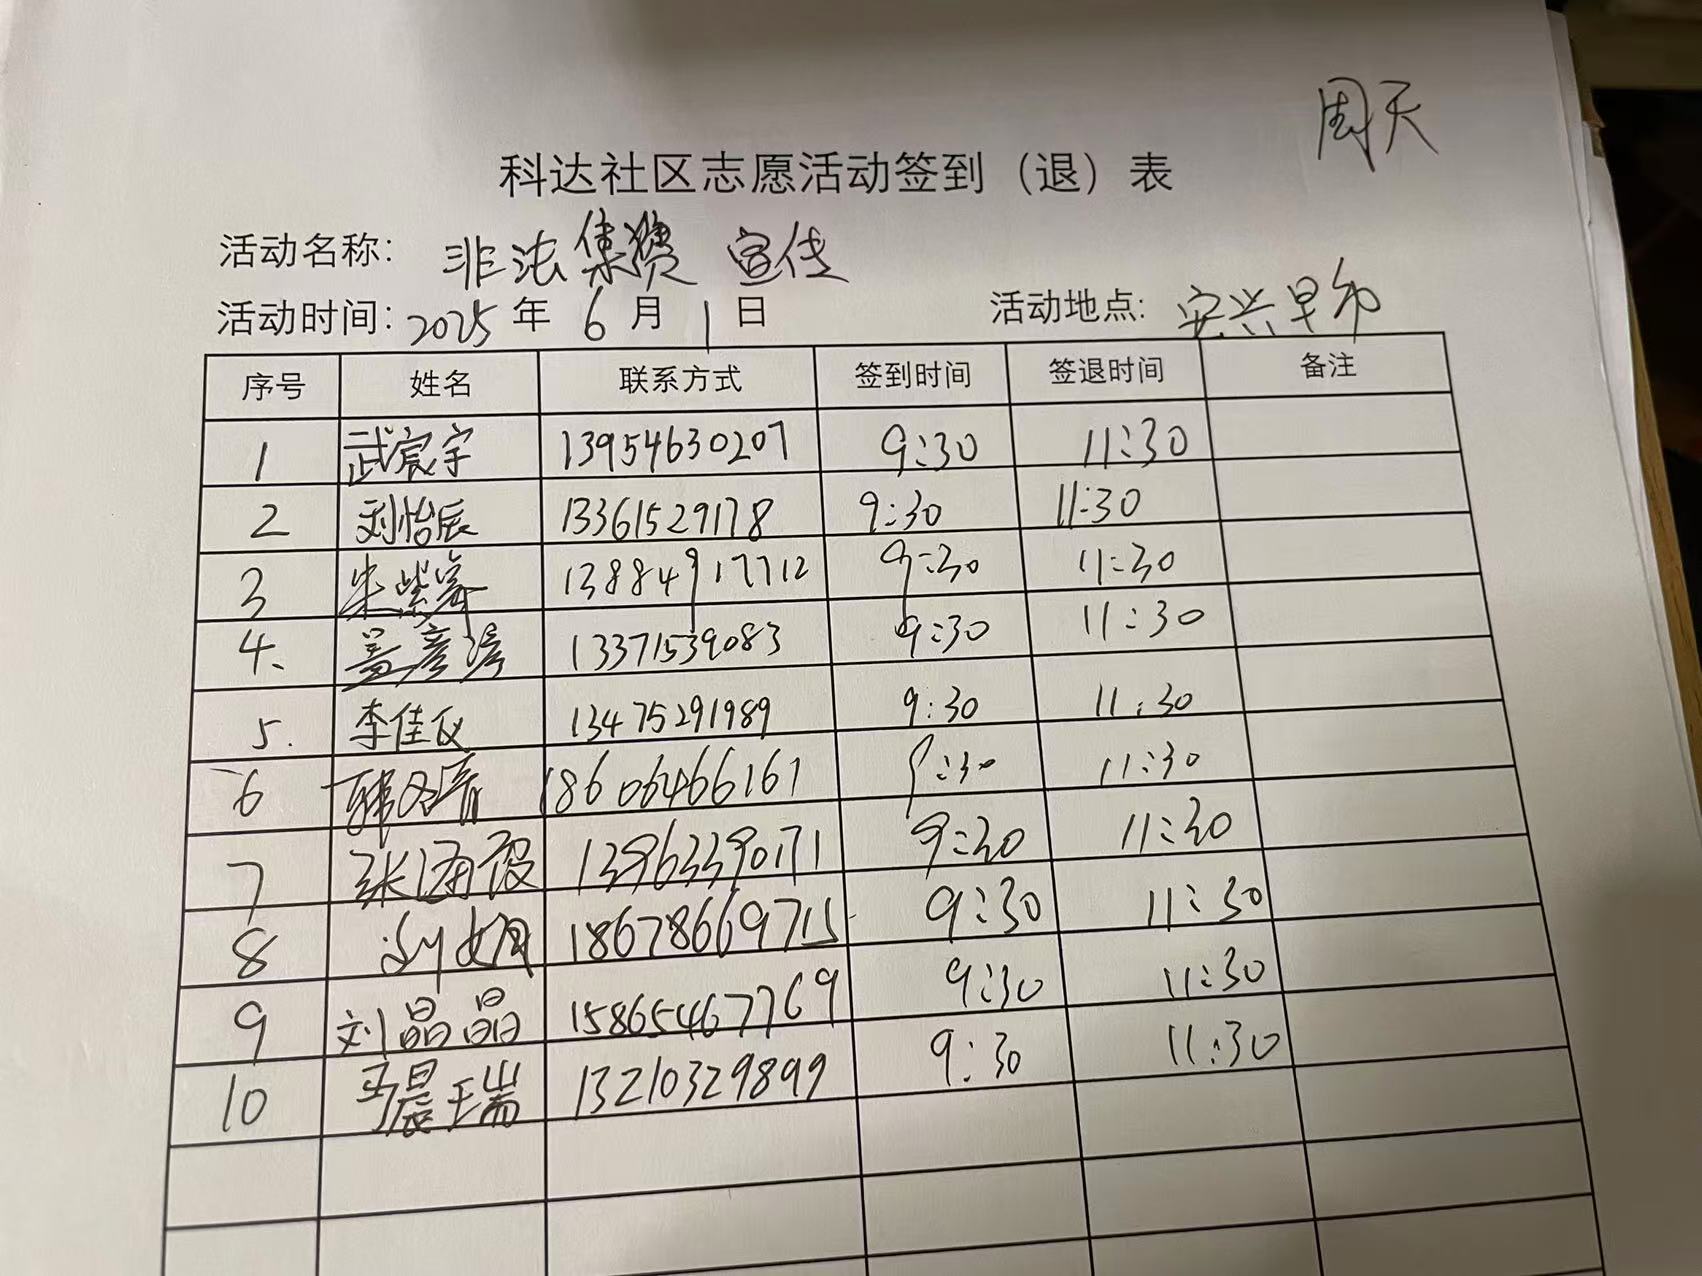 周天
科达社区志愿活动签到（退）表
活动名称：非法集资 宣传
活动时间：2025 年 6 月 1 日 活动地点：安兴早市
序号 姓名 联系方式 签到时间 签退时间 备注
1 武宸宇 13954630207 9:30 11:30
2 刘怡辰 13361529178 9:30 11:30
3 朱紫 13884917712 9:30 11:30
4、 盖彦 13371539083 9:30 11:30
5. 李佳仪 13475291989 9:30 11:30
6 韩 18606466161 9:30 11:30
7 张海霞 13963390171 9:30 11:30
8 刘娟 18678669711 9:30 11:30
9 刘晶晶 15865467769 9:30 11:30
10 马晨瑞 13210329899 9:30 11:30